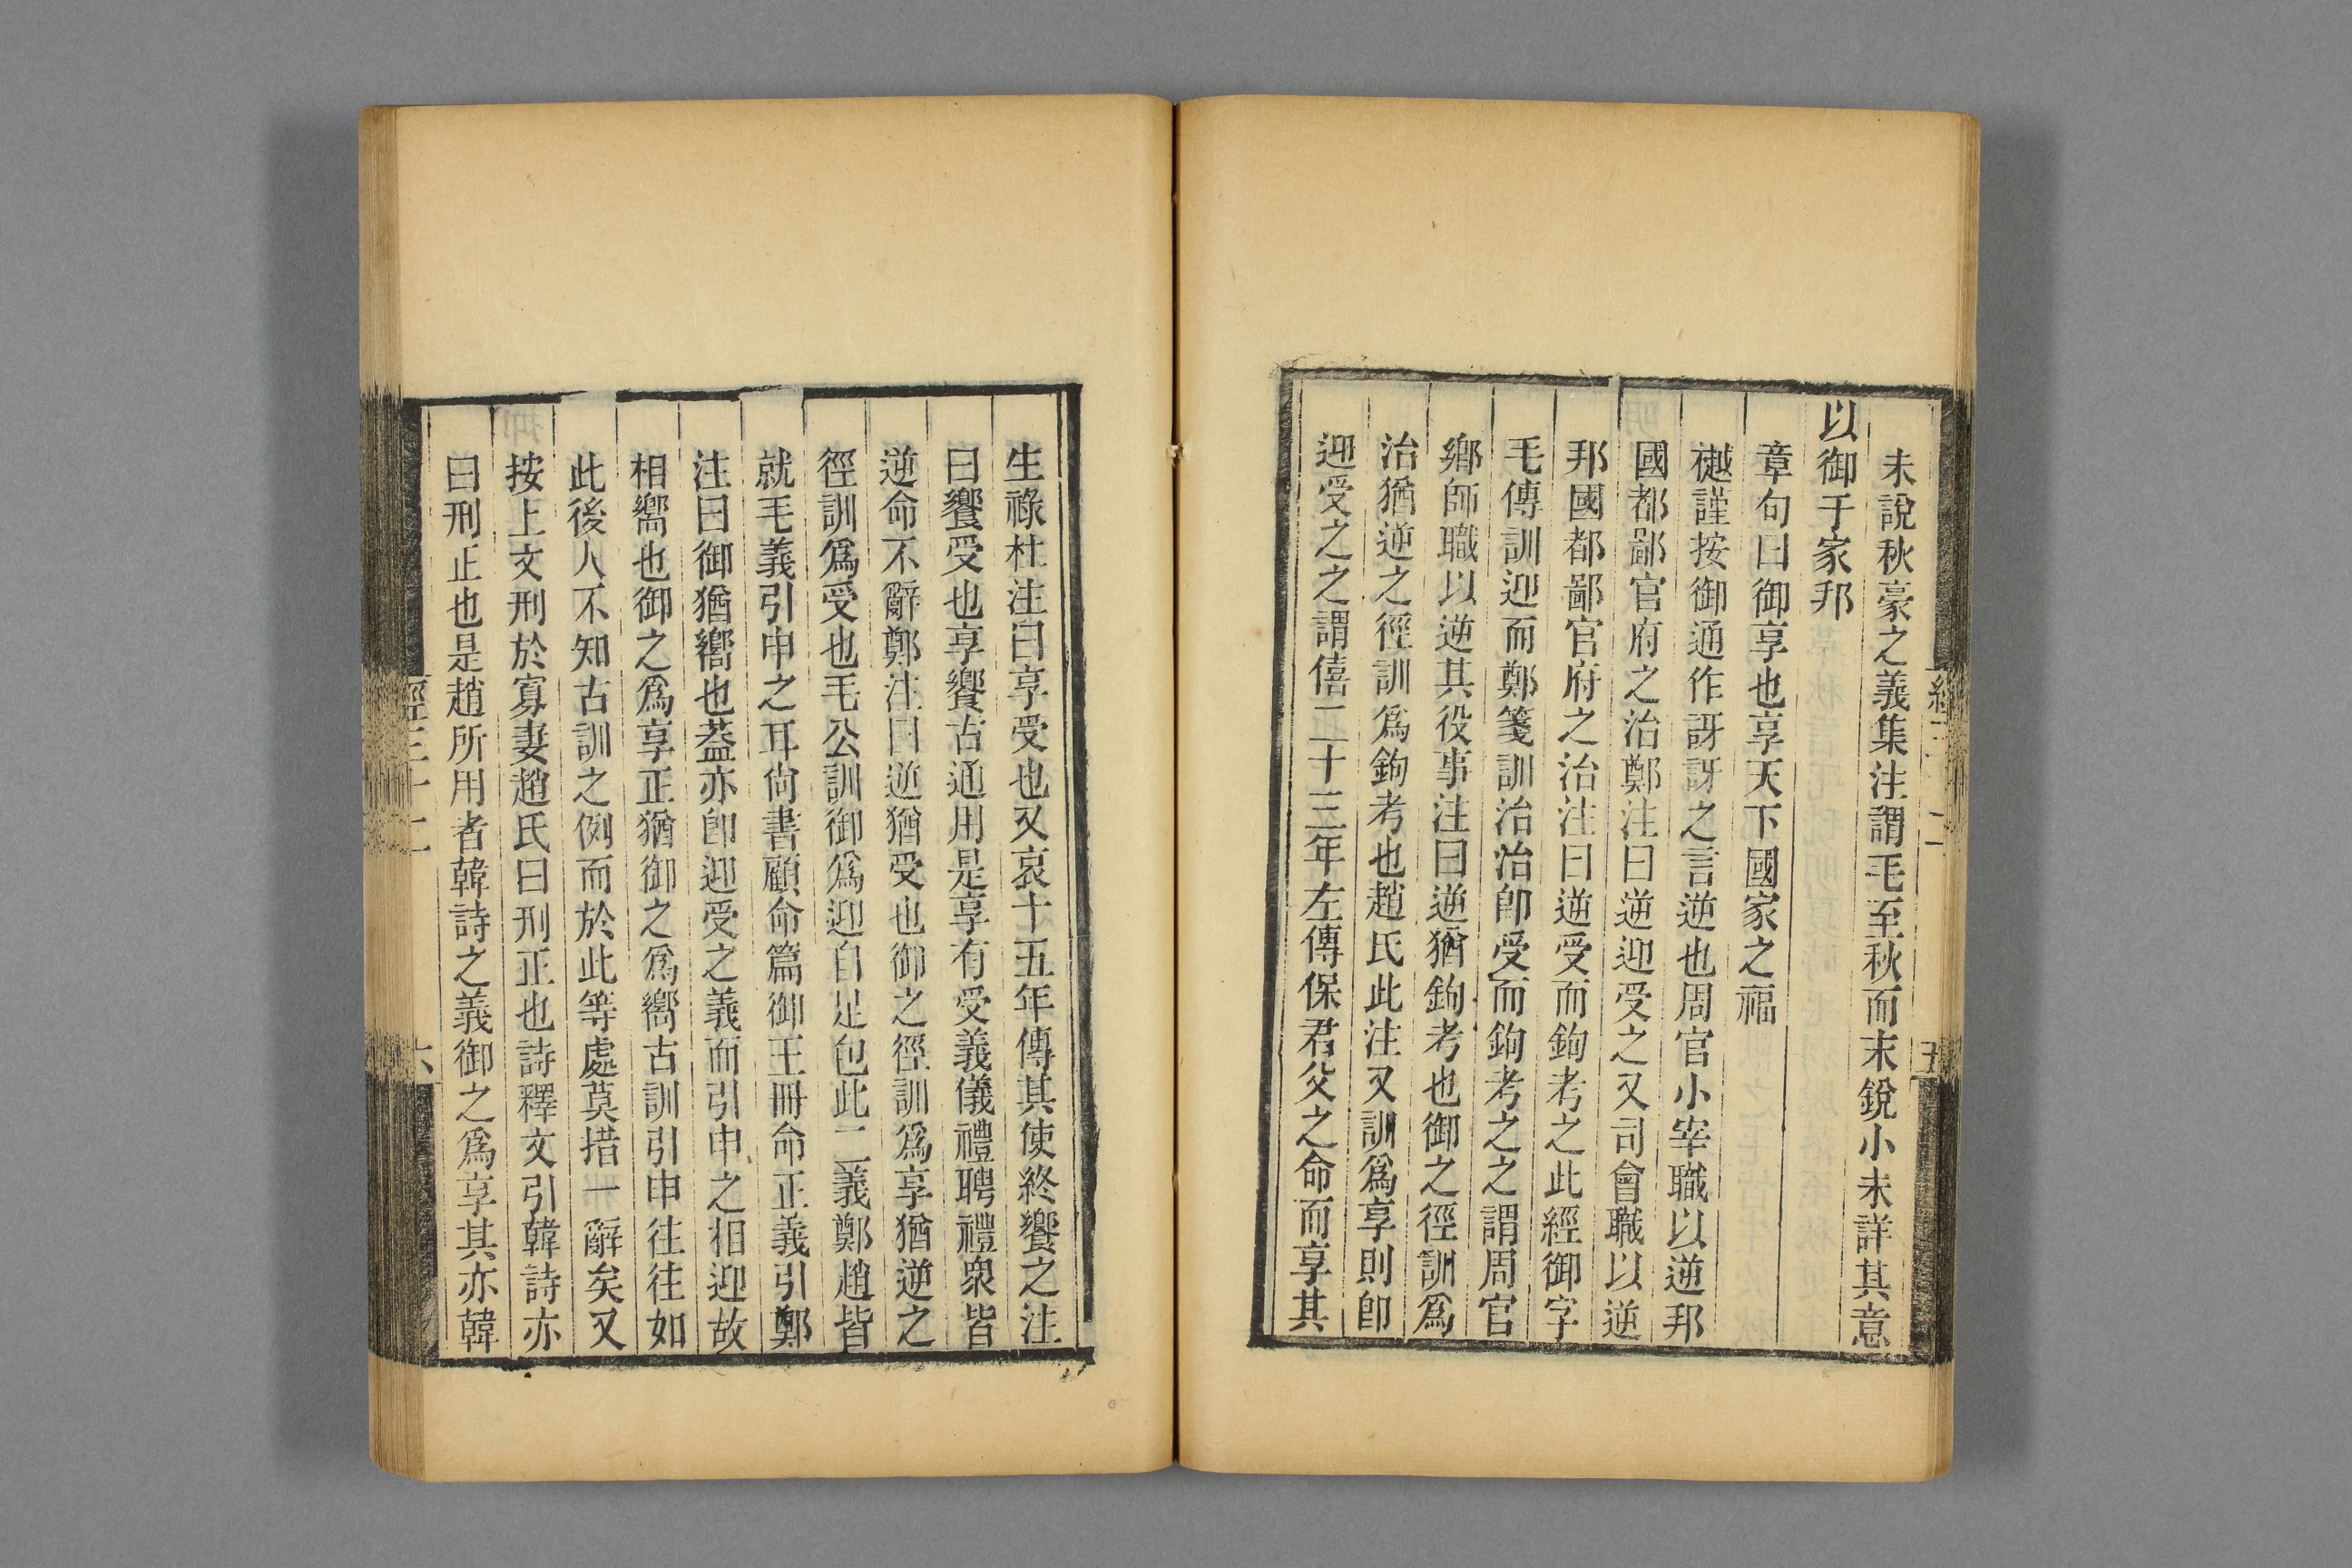 未說秋豪之義集注謂毛至秋而末銳小未詳其意
以御于家邦
章句曰御享也享天下國家之福
樾謹按御通作訝訝之言逆也周官小宰職以逆邦
國都鄙官府之治鄭注曰逆迎受之又司會職以逆
邦國都鄙官府之治注曰逆受而鉤考之此經御字
毛傳訓迎而鄭箋訓治治卽受而鉤考之之謂周官
鄉師職以逆其役事注曰逆猶鉤考也御之徑訓爲
治猶逆之徑訓爲鉤考也趙氏此注又訓爲享則卽
迎受之之謂僖二十三年左傳保君父之命而享其
生祿杜注曰享受也又哀十五年傳其使終饗之注
曰饗受也享饗古通用是享有受義儀禮聘禮衆皆
逆命不辭鄭注曰逆猶受也御之徑訓爲享猶逆之
徑訓爲受也毛公訓御爲迎自足包此二義鄭趙皆
就毛義引申之耳尙書顧命篇御王冊命正義引鄭
注曰御猶嚮也葢亦卽迎受之義而引申之相迎故
相嚮也御之爲享正猶御之爲嚮古訓引申往往如
此後人不知古訓之例而於此等處莫措一辭矣又
按上文刑於寡妻趙氏曰刑正也詩釋文引韓詩亦
曰刑正也是趙所用者韓詩之義御之爲享其亦韓
經三十二
六